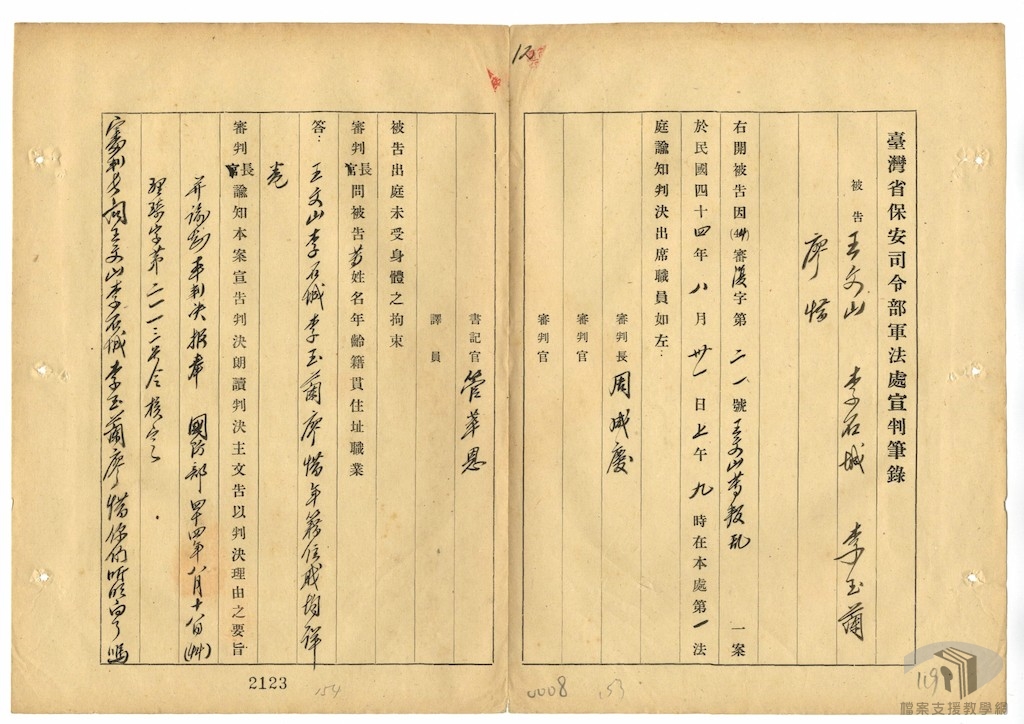 臺灣省保安司令部軍法處宣判筆錄
被告 王文山 李石城 李玉蘭
廖惜
右開被告因(44)審復字第二一號王文山等叛亂一案
於民國四十四年八月卅一日上午九時在本處第一法
庭諭知判決出席職員如左：
審判長 周咸慶
審判官
審判官
書記官 管華恩
譯員
被告出庭未受身體之拘束
審判長官問被告等姓名年齡籍貫住址職業
答：王文山李石城李玉蘭廖惜年籍住職均詳
卷
審判長官諭知本案宣告判決朗讀判決主文告以判決理由之要旨
并諭知本判決報奉 國防部四十四年八月十八日(44)
理 字第二一一三號令核定
審判長問王文山李石城李玉蘭廖惜你們聽明白了嗎
2123
154
0008
153
119
檔案支援教學網